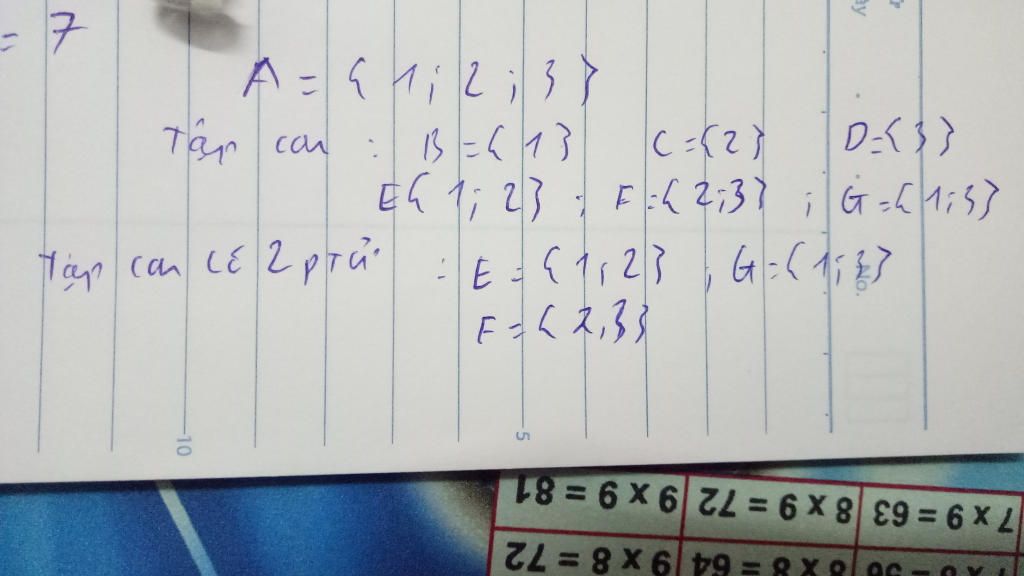 = 7
A = { 1 ; 2 ; 3 }
Tập con : B = { 1 } C = { 2 } D = { 3 }
E { 1 ; 2 } ; F = { 2 ; 3 } ; G = { 1 ; 3 }
Tập con có 2 ptử : E = { 1 ; 2 } ; G = { 1 ; 3 }
F = { 2 , 3 }
No.
10 5
9 x 9 = 81 8 x 9 = 72 7 x 9 = 63
9 x 8 = 72 8 x 8 = 64